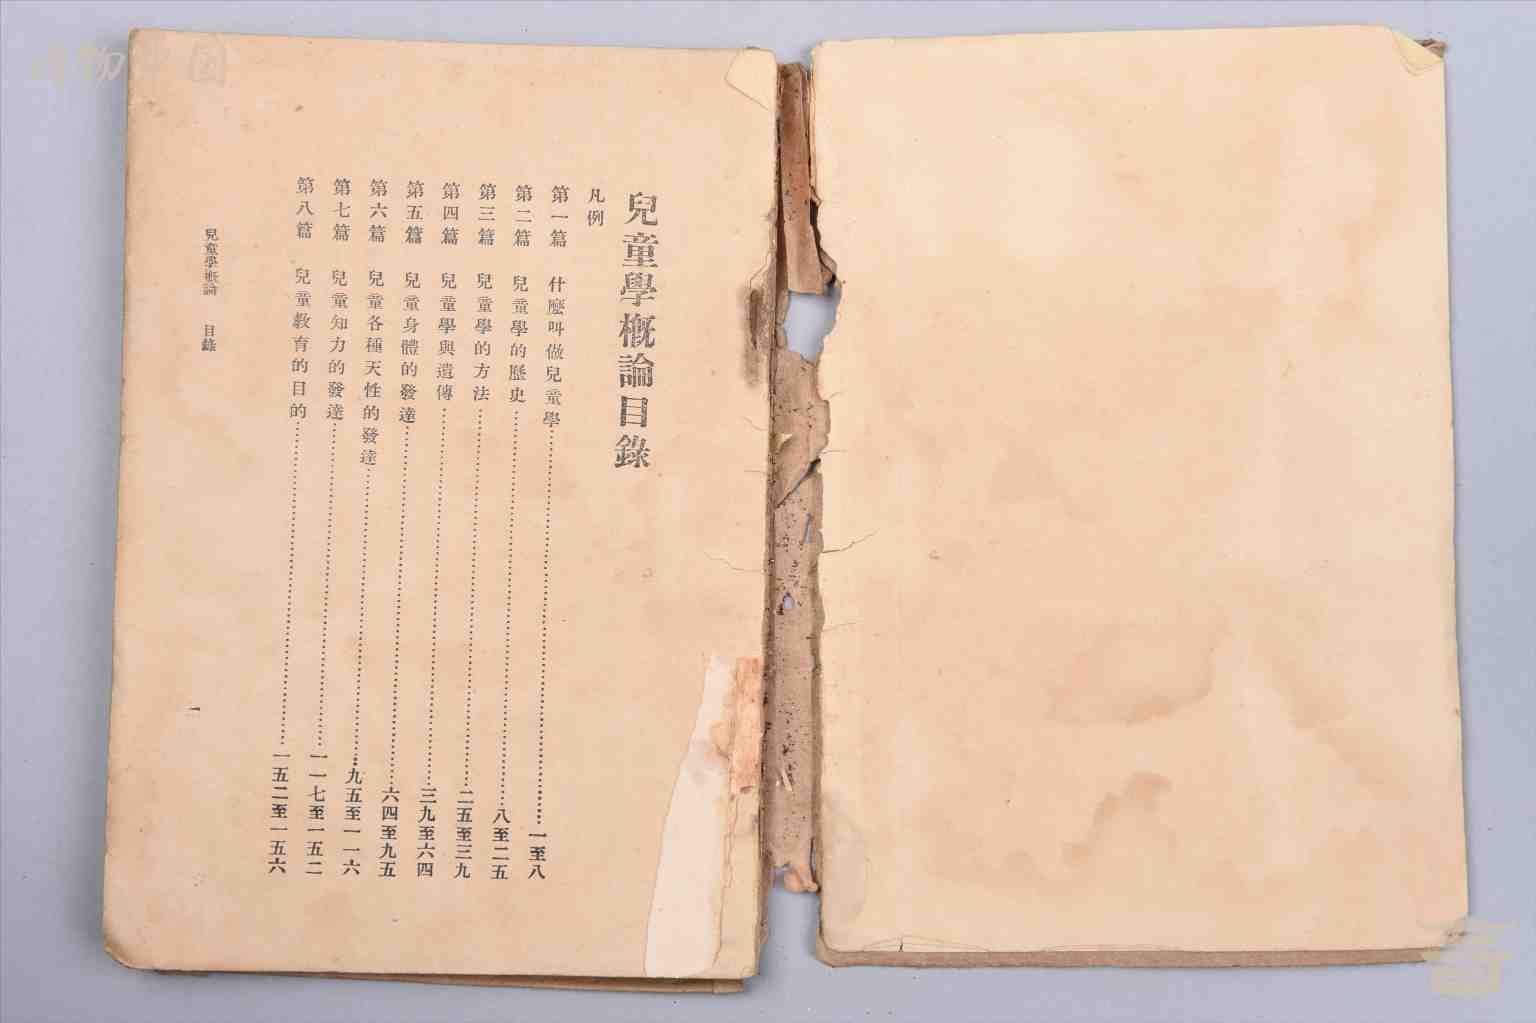 兒童學概論目錄
凡例
第一篇 什麼叫做兒童學……一至八
第二篇 兒童學的歷史……八至二五
第三篇 兒童學的方法……二五至三九
第四篇 兒童學與遺傳……三九至六四
第五篇 兒童身體的發達……六四至九五
第六篇 兒童各種天性的發達……九五至一一六
第七篇 兒童知力的發達……一一七至一五二
第八篇 兒童教育的目的……一五二至一五六
兒童學概論 目錄
一